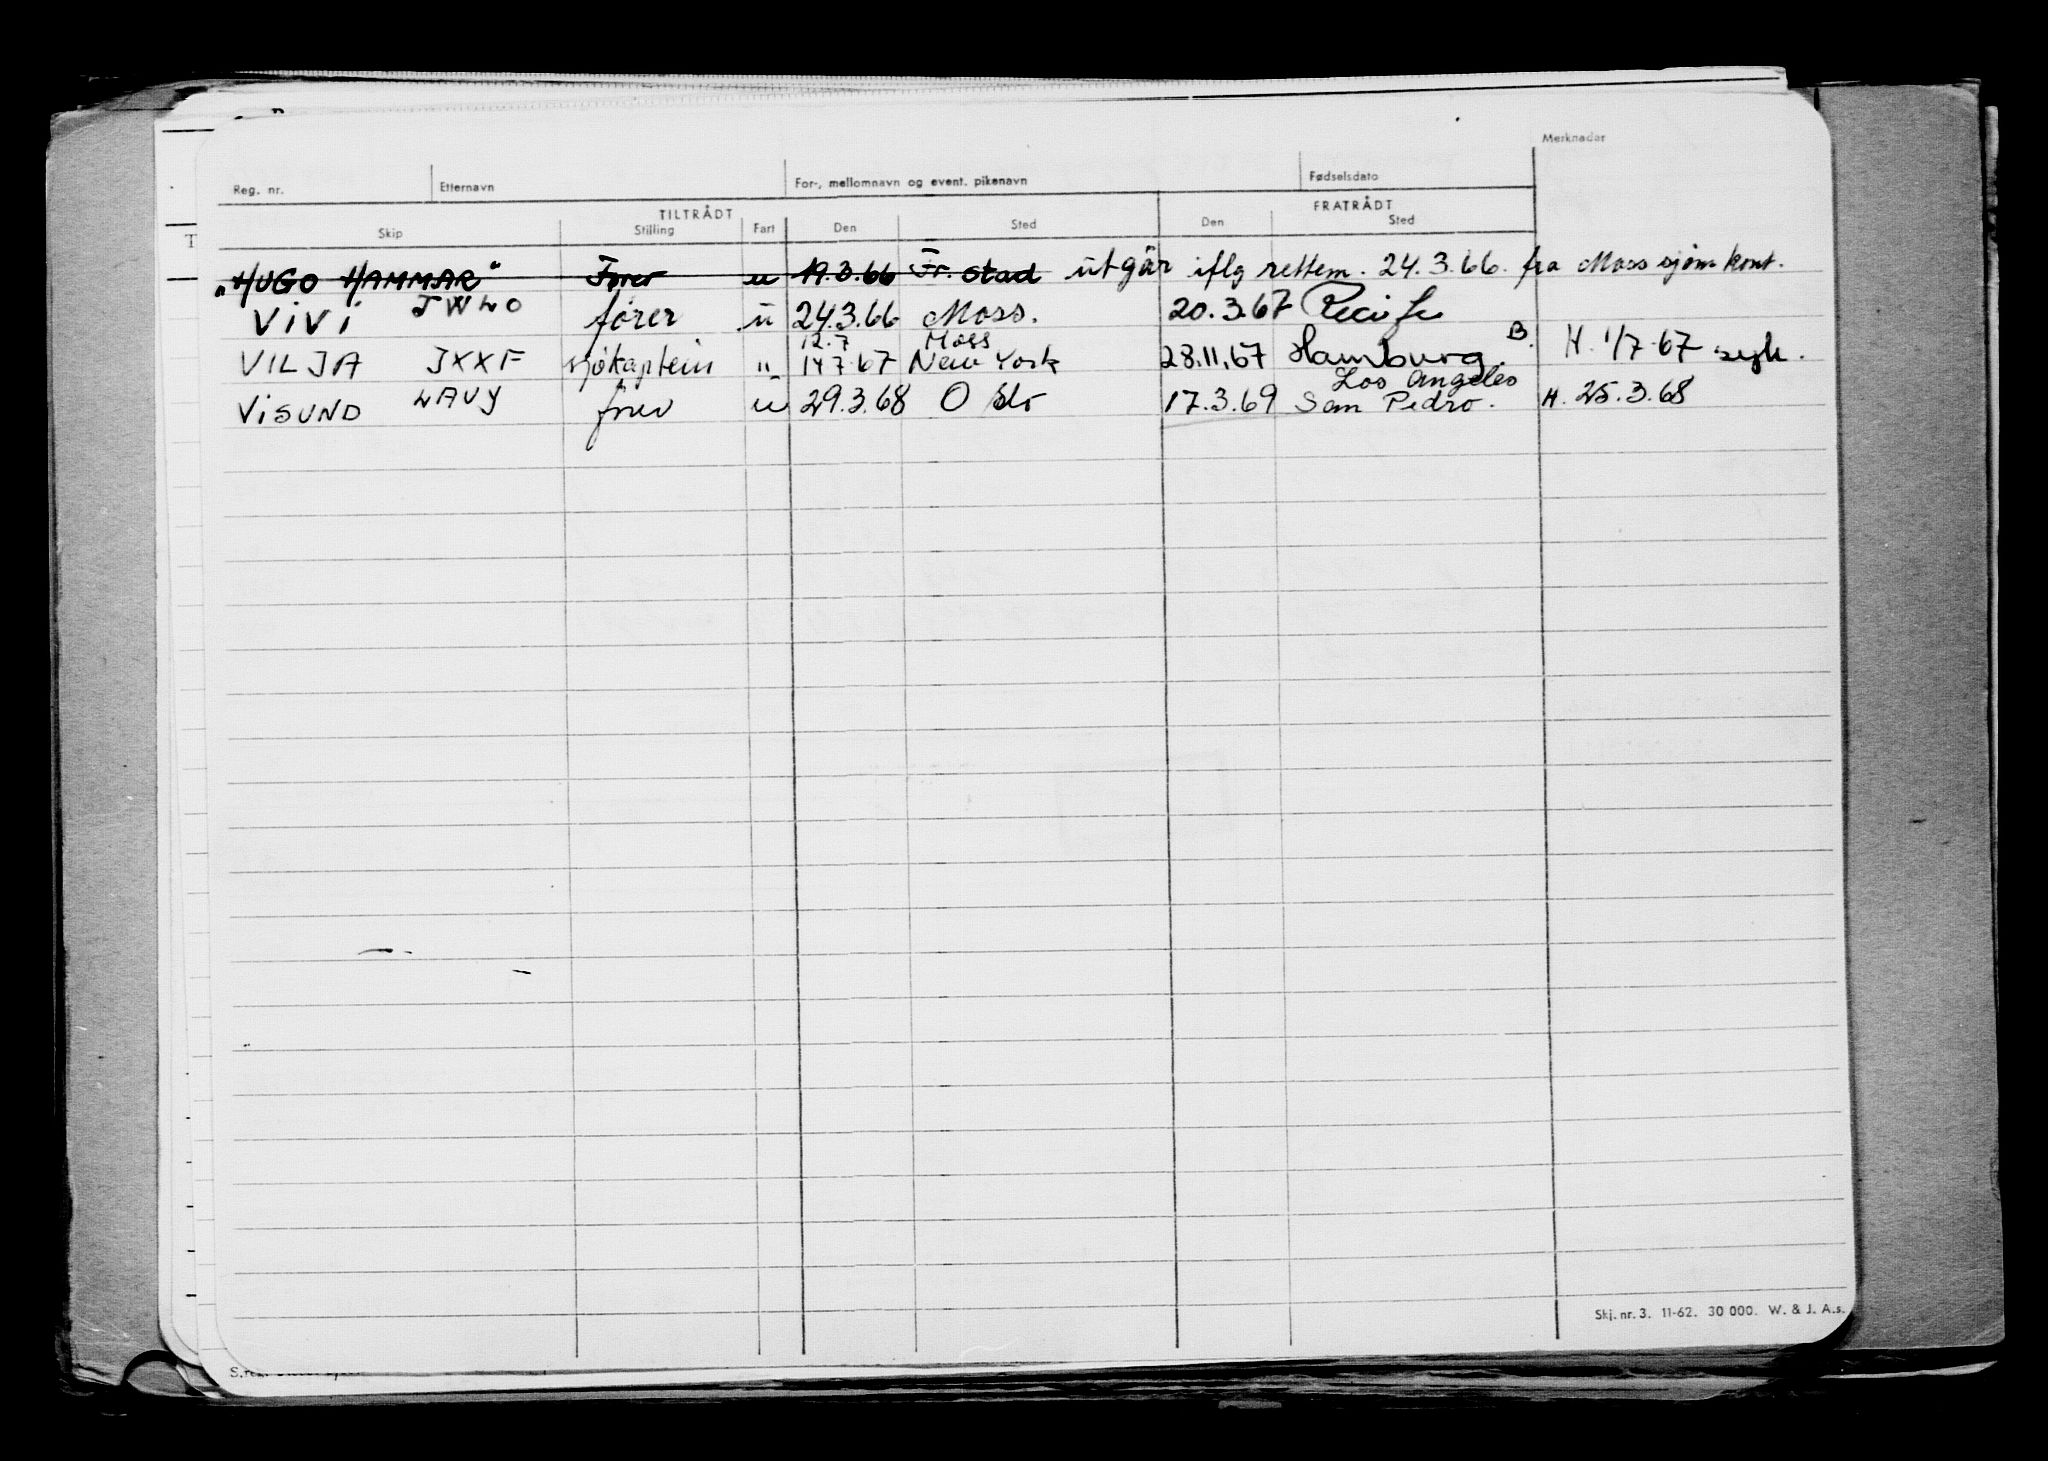 Merknader
Reg. nr. Etternavn For-, mellomnavn og event. pikenavn Fødselsdato
TILTRÅDT FRATRÅDT
Skip Stilling Fart Den Sted Den Sted
"HUGO HAMMAR" Fører u 19.3.66 Fr. stad utgår iflg rettem. 24.3.66. fra Moss sjøm.kont.
ViVi JWLO fører u 24.3.66 Moss. 20.3.67 Recife
12.7 Moss B.
VILJA JXXF sjøkaptein " 14.7.67 New York 28.11.67 Hamburg. H. 1/7-67 syk.
Los Angeles
ViSUND LAVY fører u 29.3.68 Oslo 17.3.69 San Pedro. H. 25.3.68
Skj. nr. 3. 11-62. 30 000. W. & J. A.s.